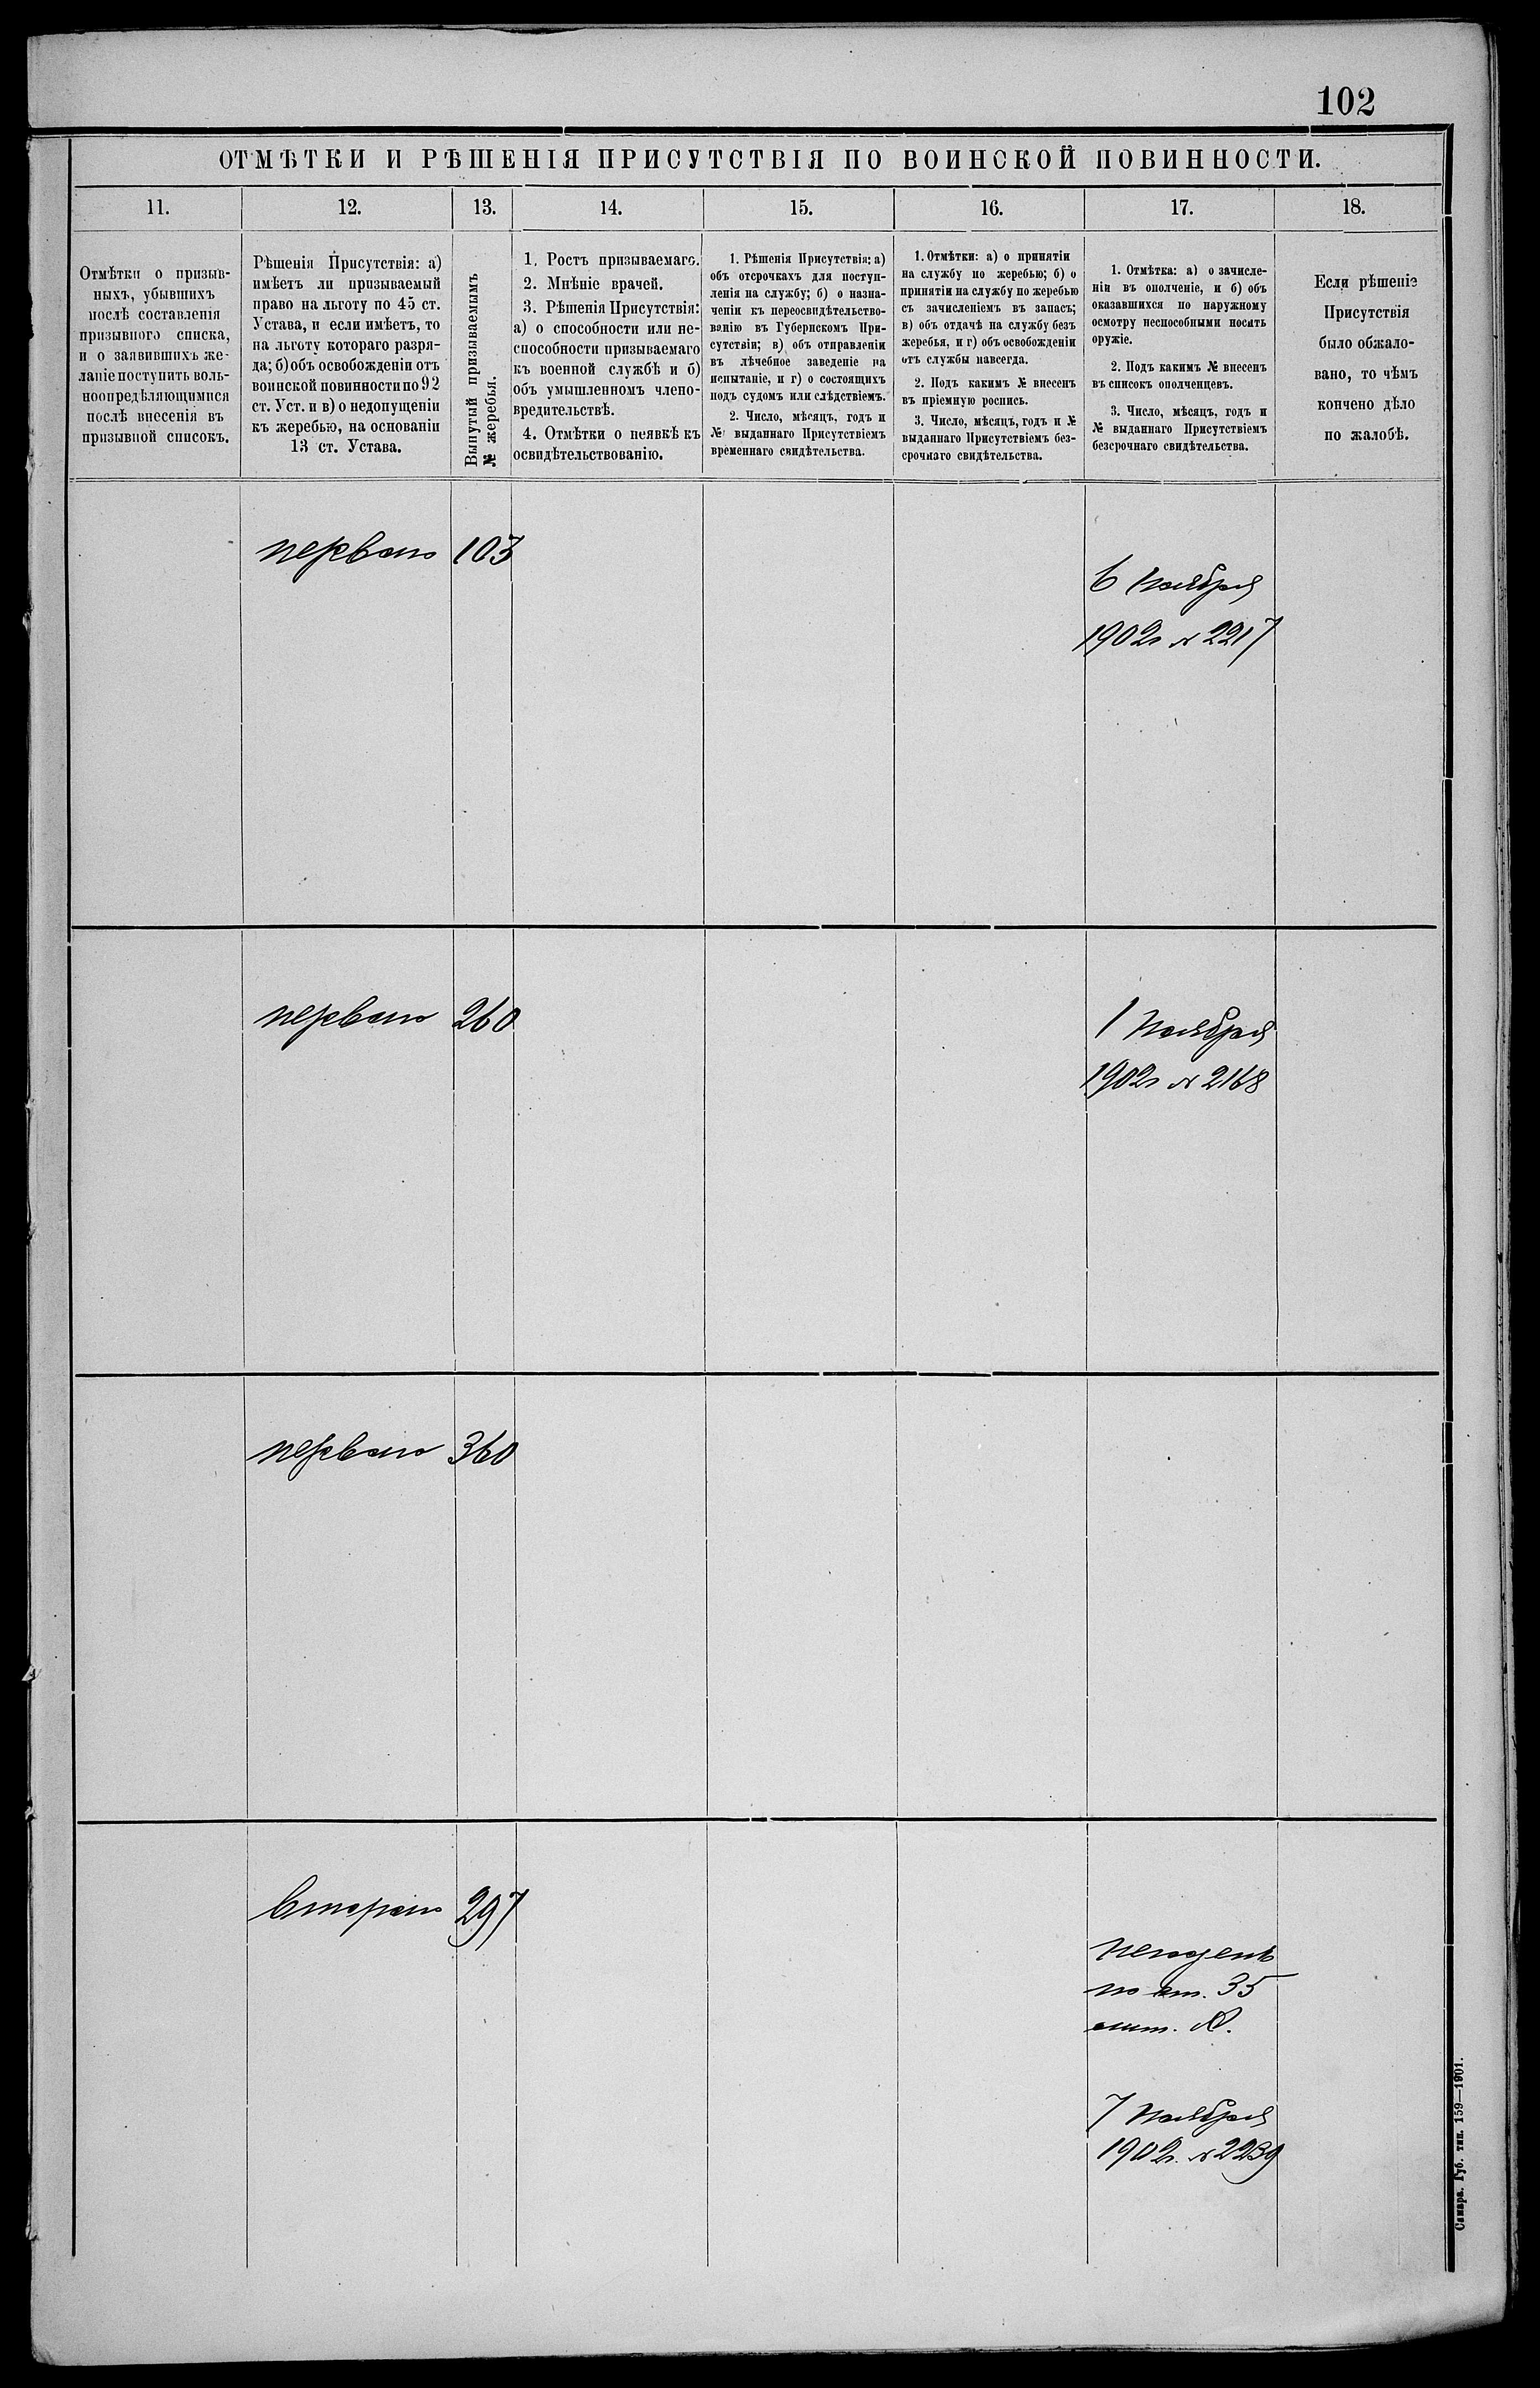 102
ОТМѢТКИ И РѢШЕНІЯ ПРИСУТСТВІЯ ПО ВОИНСКОЙ ПОВИННОСТИ.
11.
12.
13.
14.
15.
16.
17.
18.
Отмѣтки о призыв-
ныхъ, убывшихъ
послѣ составленія
призывного списка,
и о заявившихъ же-
ланіе поступить воль-
ноопредѣляющимися
послѣ внесенія въ
призывной списокъ.
Рѣшенія Присутствія: а)
имѣетъ ли призываемый
право на льготу по 45 ст.
Устава, и если имѣетъ, то
на льготу котораго разря-
да; б) объ освобожденіи отъ
воинской повинности по 92
ст. Уст. и в) о недопущеніи
къ жеребью, на основаніи
13 ст. Устава.
Вынутый призываемымъ
№ жеребья.
1. Ростъ призываемаго.
2. Мнѣніе врачей.
3. Рѣшенія Присутствія:
а) о способности или не-
способности призываемаго
къ военной службѣ и б)
объ умышленномъ члено-
вредительствѣ.
4. Отмѣтки о неявкѣ къ
освидѣтельствованію.
1. Рѣшенія Присутствія: а)
объ отсрочкахъ для поступ-
ленія на службу; б) о назна-
ченіи къ переосвидѣтельство-
ванію въ Губернскомъ При-
сутствіи; в) объ отправленіи
въ лѣчебное заведеніе на
испытаніе, и г) о состоящихъ
подъ судомъ или слѣдствіемъ.
2. Число, мѣсяцъ, годъ и
№ выданнаго Присутствіемъ
временнаго свидѣтельства.
1. Отмѣтки: а) о принятіи
на службу по жеребью; б) о
принятіи на службу по жеребью
съ зачисленіемъ въ запасъ;
в) объ отдачѣ на службу безъ
жеребья, и г) объ освобожденіи
отъ службы навсегда.
2. Подъ какимъ № внесенъ
въ пріемную роспись.
3. Число, мѣсяцъ, годъ и №
выданнаго Присутствіемъ без-
срочнаго свидѣтельства.
1. Отмѣтка: а) о зачисле-
ніи въ ополченіе, и б) объ
оказавшихся по наружному
осмотру неспособными носить
оружіе.
2. Подъ какимъ № внесенъ
въ списокъ ополченцевъ.
3. Число, мѣсяцъ, годъ и
№ выданнаго Присутствіемъ
безсрочнаго свидѣтельства.
Если рѣшеніе
Присутствія
было обжало-
вано, то чѣмъ
кончено дѣло
по жалобѣ.
перваго 103
6 Ноября
1902г № 2217
перваго 260
1 Ноября
1902г № 2168
перваго 360
втораго 297
негоденъ
по ст. 35
лит. А.
7 Ноября
1902г. № 2239
Самара. Губ. тип. 159—1901.